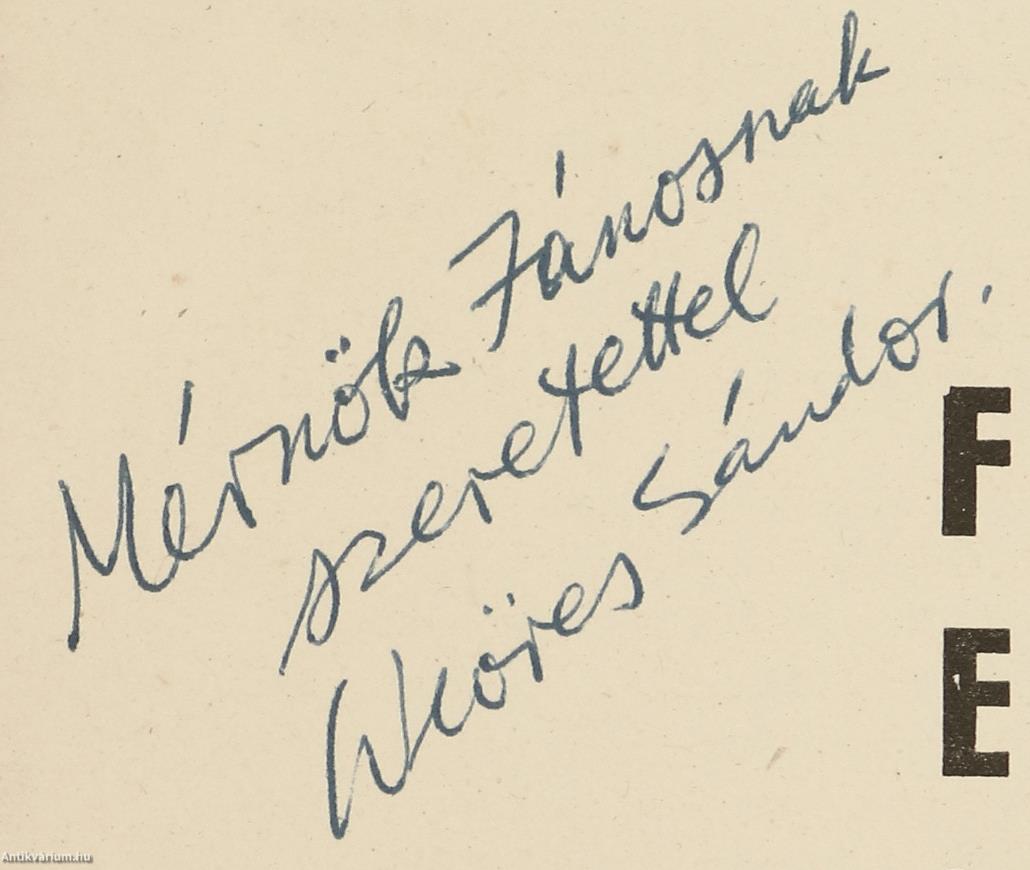 Mérnök Jánosnak
szeretettel
Weöres Sándor.
F
E
Antikvárium.hu